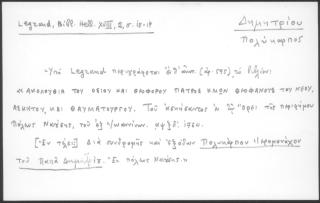 Legrand, Bibl. Hell. XVIII, 2, σ. 18-19
Δημητρίου
Πολύκαρπος
Ὑπὸ Legrand περιγράφεται (ἀρ. 595) τὸ βιβλίον:
« ΑΚΟΛΟΥΘΙΑ ΤΟΥ ΟΣΙΟΥ ΚΑΙ ΘΕΟΦΟΡΟΥ ΠΑΤΡΟΣ ΗΜΩΝ ΘΕΟΦΑΝΟΥΣ ΤΟΥ ΝΕΟΥ,
ΑΣΚΗΤΟΥ, ΚΑΙ ΘΑΥΜΑΤΟΥΡΓΟΥ. Τοῦ ἐν τῷ Ὄρει τῆς περιφήμου
Πόλεως Ναούσης, τοῦ ἐξ Ἰωαννίνων. αψξδ΄. 1764.
[Ἐν τέλει] Διὰ συνδρομῆς καὶ ἐξόδων Πολυκάρπου Ἱερομονάχου
τοῦ Παπᾶ Δημητρίου. Ἐκ πόλεως Ναούσης. »